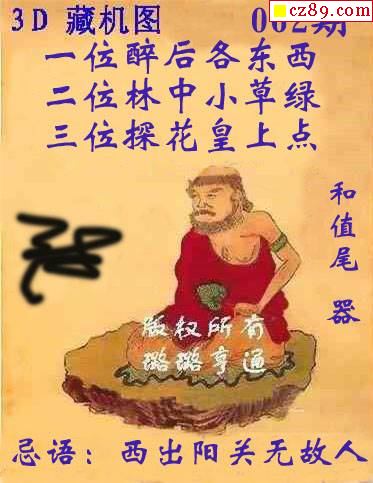 cz89.com
3D 藏机图 002期
一位醉后各东西
二位林中小草绿
三位探花皇上点
和值尾 器
版权所有
璐璐亨通
忌语：西出阳关无故人